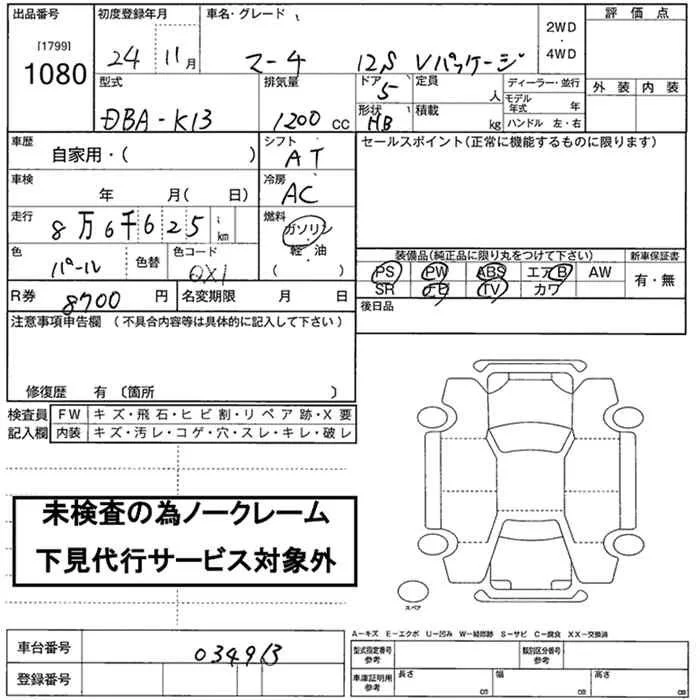 出品番号 初度登録年月 車名・グレード 2WD・4WD 評価点
[1799]
1080 24 11月 マーチ 12S Vパッケージ
型式 排気量 ドア 5 定員 人 ディーラー・並行 外装 内装
DBA-K13 1200cc 形状 HB 積載 kg モデル年式 年
ハンドル 左・右
車歴 自家用・( ) シフト AT セールスポイント(正常に機能するものに限ります)
車検 年 月( 日) 冷房 AC
走行 8万6千625 km 燃料 ガソリン・軽・油 ( )
色 パール 色替 色コード QX1 装備品(純正品に限り丸をつけて下さい) 新車保証書
PS PW ABS エアB AW 有・無
SR TV カワ
R券 8700円 名変期限 月 日 後日品
注意事項申告欄(不具合内容等は具体的に記入して下さい)
修復歴 有〔箇所 〕
検査員 FW キズ・飛石・ヒビ割・リペア跡・X要
記入欄 内装 キズ・汚レ・コゲ・穴・スレ・キレ・破レ
未検査の為ノークレーム
下見代行サービス対象外
スペア
A-キズ E-エクボ U-凹み W-補修跡 S-サビ C-腐食 XX-交換済
車台番号 034913 型式指定番号 参考 類別区分番号 参考
登録番号 車庫証明用 参考 長さ cm 幅 cm 高さ cm